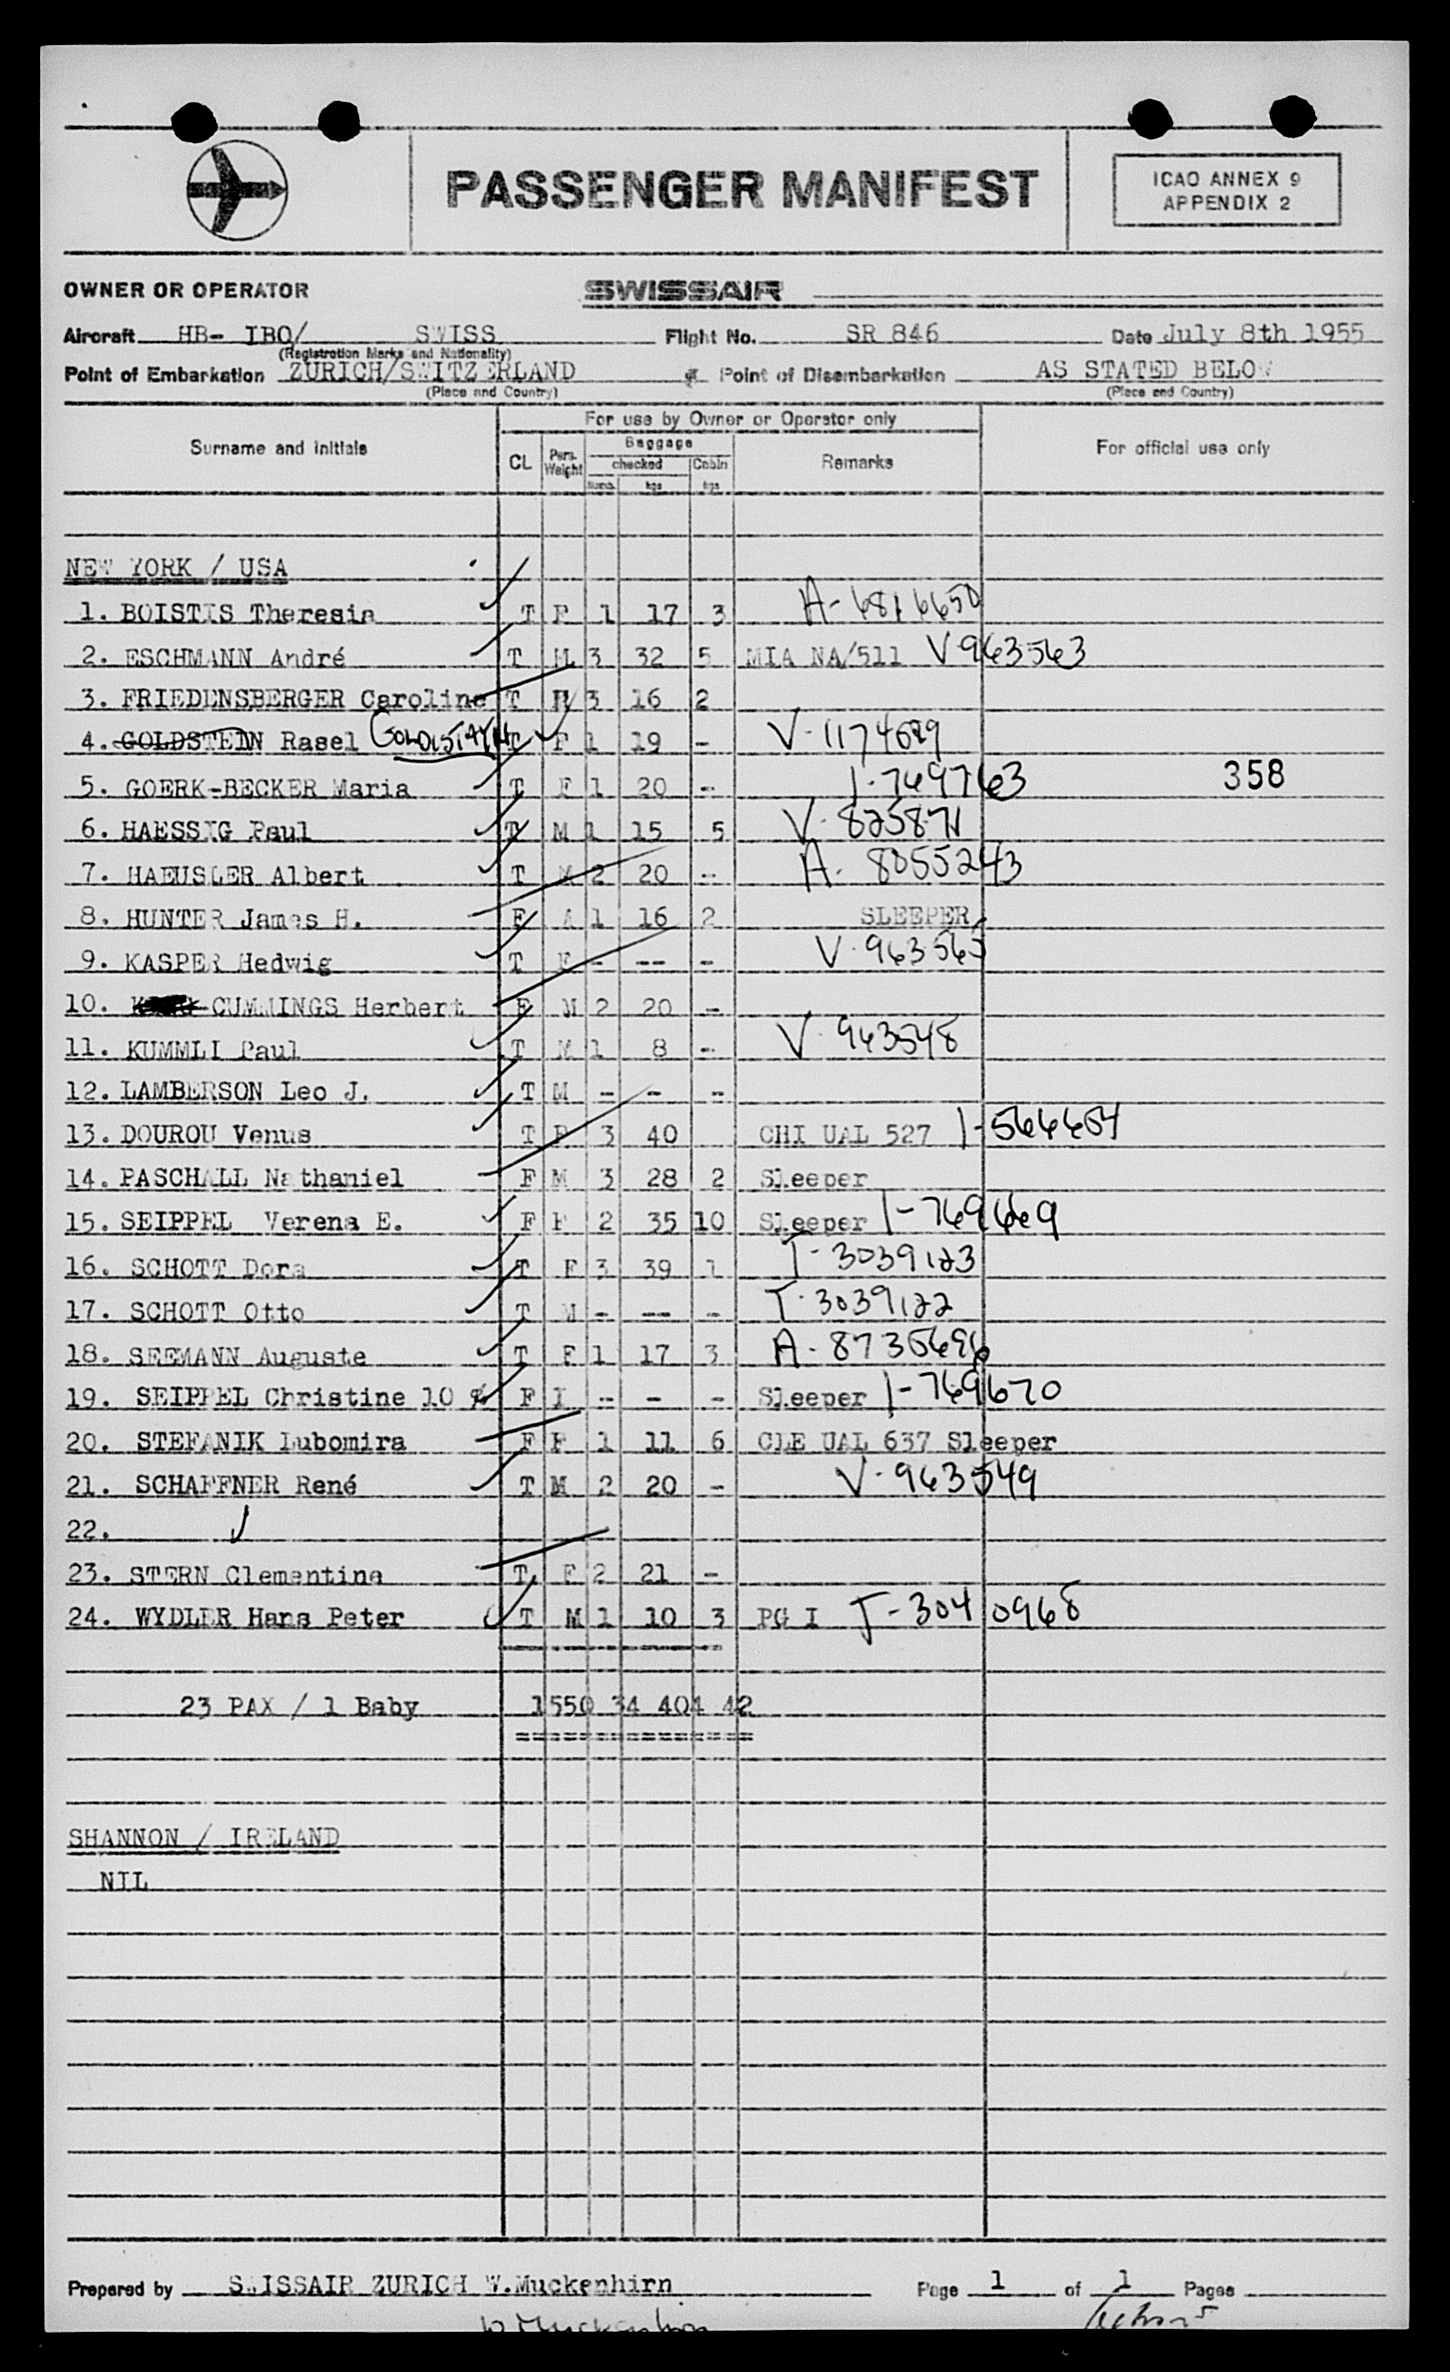 PASSENGER MANIFEST
ICAO ANNEX 9
APPENDIX 2
OWNER OR OPERATOR SWISSAIR
Aircraft HB- IBO/ SWISS Flight No. SR 846 Date July 8th 1955
(Registration Marks and Nationality)
Point of Embarkation ZURICH/SWITZERLAND Point of Disembarkation AS STATED BELOW
(Place and Country) (Place and Country)
For use by Owner or Operator only
Surname and initials CL Pers. Weight Baggage Remarks For official use only
checked Cabin
Numb. kgs kgs
NEW YORK / USA
1. BOISTIS Theresia T F 1 17 3 A-6816650
2. ESCHMANN André T M 3 32 5 MIA NA/511 V963563
3. FRIEDENSBERGER Caroline T 3 16 2
4. GOLDSTEIN Rasel T F 1 19 - V-1174689
5. GOERK-BECKER Maria T F 1 20 -- I-769763 358
6. HAESSIG Paul T M 1 15 5 V-825871
7. HAEUSLER Albert T M 2 20 -- A-8055243
8. HUNTER James H. F 1 16 2 SLEEPER
9. KASPER Hedwig T F - -- - V-963565
10. CUMMINGS Herbert F M 2 20 -
11. KUMMLI Paul T M 1 8 -- V-963548
12. LAMBERSON Leo J. T M - - --
13. DOUROU Venus T F 3 40 CHI UAL 527 I-566464
14. PASCHALL Nathaniel F M 3 28 2 Sleeper
15. SEIPPEL Verena E. F F 2 35 10 Sleeper I-769669
16. SCHOTT Dora T F 3 39 1 T-3039123
17. SCHOTT Otto T M - -- - T-3039122
18. SEEMANN Auguste T F 1 17 3 A-8735696
19. SEIPPEL Christine 10 % F I -- - - Sleeper I-769670
20. STEFANIK Lubomira F F 1 11 6 CLE UAL 637 Sleeper
21. SCHAFFNER René T M 2 20 - V-963549
22.
23. STERN Clementina T F 2 21 -
24. WYDLER Hans Peter T M 1 10 3 PG I T-3040968
23 PAX / 1 Baby 1550 34 404 42
SHANNON / IRELAND
NIL
Prepared by SWISSAIR ZURICH W.Muckenhirn Page 1 of 1 Pages
W Muckenhirn